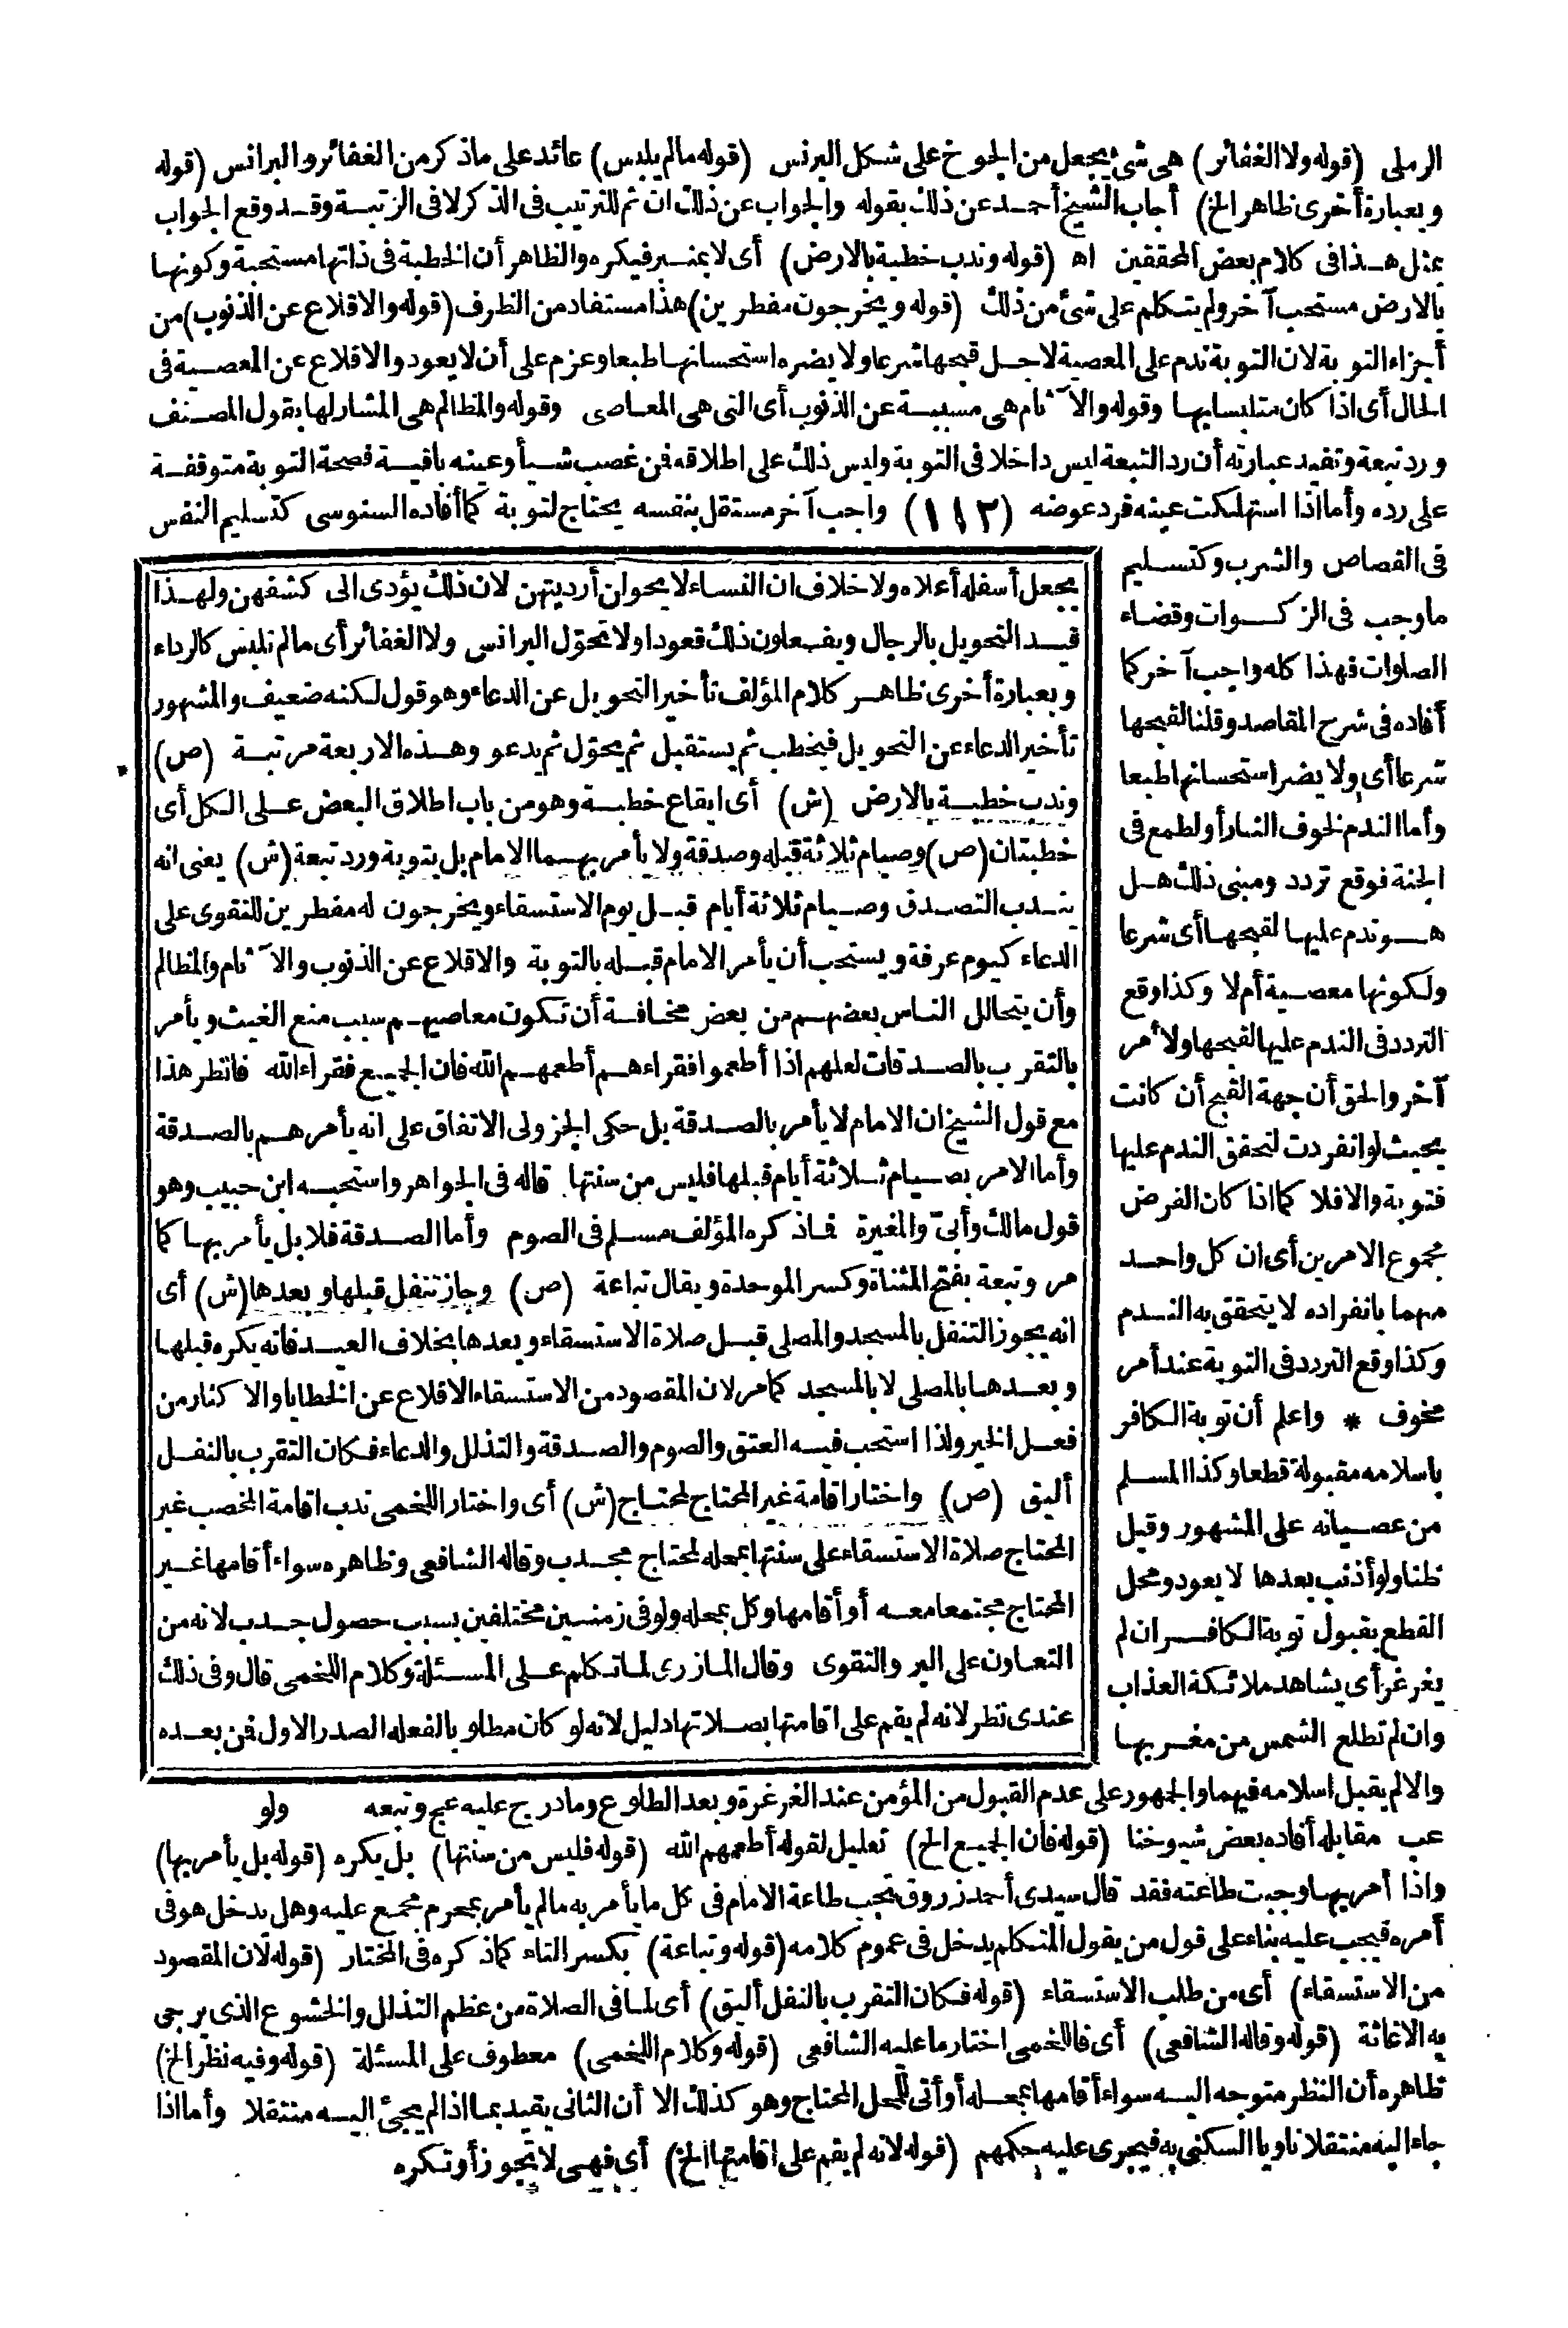 الرملى (قوله ولا الغفائر) هى شئ يجعل من الجوخ على شكل البرنس (قوله مالم يلبس) عائد على ماذكر من الغفائر والبرانس (قوله
وبعبارة أخرى ظاهر الخ) أجاب الشيخ أحمد عن ذلك بقوله والجواب عن ذلك ان ثم للترتيب فى الذكر لا فى الرتبة وقد وقع الجواب
بمثل هذا فى كلام بعض المحققين اه (قوله وندب خطبة بالارض) أى لا بمنبر فيكره والظاهر أن الخطبة فى ذاتها مستحبة وكونها
بالارض مستحب آخر ولم يتكلم على شئ من ذلك (قوله ويخرجون مفطرين) هذا مستفاد من الظرف (قوله والاقلاع عن الذنوب) من
أجزاء التوبة لان التوبة ندم على المعصية لاجل قبحها شرعا ولا يضره استحسانها طبعا وعزم على أن لا يعود والاقلاع عن المعصية فى
الحال أى اذا كان متلبسا بها وقوله والآثام هى مسببة عن الذنوب أى التى هى المعاصى وقوله والمظالم هى المشار لها بقول المصنف
ورد تبعة وتفيد عبارته أن رد التبعة ليس داخلا فى التوبة وليس ذلك على اطلاقه فمن غصب شيأ وعينه باقية فصحة التوبة متوقفة
على رده وأما اذا استهلكت عينه فرد عوضه (١١٢) واجب آخر مستقل بنفسه يحتاج لتوبة كما أفاده السنوسى كتسليم النفس
فى القصاص والشرب وكتسليم
ما وجب فى الزكوات وقضاء
الصلوات فهذا كله واجب آخر كما
أفاده فى شرح المقاصد وقلنا لقبحها
شرعا أى ولا يضر استحسانها طبعا
وأما الندم لخوف النار أو لطمع فى
الجنة فوقع تردد ومبنى ذلك هل
هو ندم عليها لقبحها أى شرعا
ولكونها معصية أم لا وكذا وقع
التردد فى الندم عليها لقبحها ولأمر
آخر والحق أن جهة القبح أن كانت
بحيث لو انفردت لتحقق الندم عليها
فتوبة والا فلا كما اذا كان الغرض
مجموع الامرين أى ان كل واحد
منهما بانفراده لا يتحقق به الندم
وكذا وقع التردد فى التوبة عند أمر
مخوف * واعلم أن توبة الكافر
باسلامه مقبولة قطعا وكذا المسلم
من عصيانه على المشهور وقيل
ظنا ولو أذنب بعدها لا يعود ومحل
القطع بقبول توبة الكافر ان لم
يغرغر أى يشاهد ملائكة العذاب
وان لم تطلع الشمس من مغربها
يجعل أسفله أعلاه ولا خلاف ان النساء لا يحولن أرديتهن لان ذلك يؤدى الى كشفهن ولهذا
قيد التحويل بالرجال ويفعلون ذلك قعودا ولا تحوّل البرانس ولا الغفائر أى مالم تلبس كالرداء
وبعبارة أخرى ظاهر كلام المؤلف تأخير التحويل عن الدعاء وهو قول لكنه ضعيف والمشهور
تأخير الدعاء عن التحويل فيخطب ثم يستقبل ثم يحوّل ثم يدعو وهذه الاربعة مرتبة (ص)
وندب خطبة بالارض (ش) أى ايقاع خطبة وهو من باب اطلاق البعض على الكل أى
خطبتان (ص) وصيام ثلاثة قبله وصدقة ولا يأمر بهما الامام بل بتوبة ورد تبعة (ش) يعنى انه
يندب التصدق وصيام ثلاثة أيام قبل يوم الاستسقاء ويخرجون له مفطرين للتقوى على
الدعاء كيوم عرفة ويستحب أن يأمر الامام قبله بالتوبة والاقلاع عن الذنوب والآثام والمظالم
وأن يتحالل الناس بعضهم من بعض مخافة أن تكون معاصيهم سبب منع الغيث ويأمر
بالتقرب بالصدقات لعلهم اذا أطعموا فقراءهم أطعمهم الله فان الجميع فقراء الله فانظر هذا
مع قول الشيخ ان الامام لا يأمر بالصدقة بل حكى الجزولى الاتفاق على انه يأمرهم بالصدقة
وأما الامر بصيام ثلاثة أيام قبلها فليس من سنتها قاله فى الجواهر واستحبه ابن حبيب وهو
قول مالك وأبىّ والمغيرة فاذكره المؤلف مسلم فى الصوم وأما الصدقة فلا بل يأمر بها كما
مر وتبعة بفتح المثناة وكسر الموحدة ويقال تباعة (ص) وجاز تنفل قبلها وبعدها (ش) أى
انه يجوز التنفل بالمسجد والمصلى قبل صلاة الاستسقاء وبعدها بخلاف العيد فانه يكره قبلها
وبعدها بالمصلى لا بالمسجد كما مر لان المقصود من الاستسقاء الاقلاع عن الخطايا والاكثار من
فعل الخير ولذا استحب فيه العتق والصوم والصدقة والتذلل والدعاء فكان التقرب بالنفل
أليق (ص) واختار اقامة غير المحتاج لمحتاج (ش) أى واختار اللخمى ندب اقامة المخصب غير
المحتاج صلاة الاستسقاء على سنتها بمحله لمحتاج مجدب وقاله الشافعى وظاهره سواء أقامها غير
المحتاج مجتمعا معه أو أقامها وكل بمحله ولو فى زمنين مختلفين بسبب حصول جدب لانه من
التعاون على البر والتقوى وقال المازرى لما تكلم على المسئلة وكلام اللخمى قال وفى ذلك
عندى نظر لانه لم يقم على اقامتها بصلاتها دليل لانه لو كان مطلوبا لفعله الصدر الاول فمن بعده
والا لم يقبل اسلامه فيهما والجمهور على عدم القبول من المؤمن عند الغرغرة وبعد الطلوع وما درج عليه عج وتبعه ولو
عب مقابله أفاده بعض شيوخنا (قوله فان الجميع الخ) تعليل لقوله أطعمهم الله (قوله فليس من سنتها) بل يكره (قوله بل يأمر بها)
واذا أمر بها وجبت طاعته فقد قال سيدى أحمد زروق تجب طاعة الامام فى كل ما يأمر به مالم يأمر بمحرم مجمع عليه وهل يدخل هو فى
أمره فيجب عليه بناء على قول من يقول المتكلم يدخل فى عموم كلامه (قوله وتباعة) بكسر التاء كما ذكره فى المختار (قوله لان المقصود
من الاستسقاء) أى من طلب الاستسقاء (قوله فكان التقرب بالنفل أليق) أى لما فى الصلاة من عظم التذلل والخشوع الذى يرجى
به الاغاثة (قوله وقاله الشافعى) أى فاللخمى اختار ما عليه الشافعى (قوله وكلام اللخمى) معطوف على المسئلة (قوله وفيه نظر الخ)
ظاهره أن النظر متوجه اليه سواء أقامها بمحله أو أتى لمحل المحتاج وهو كذلك الا أن الثانى يقيد بما اذا لم يجئ اليه منتقلا وأما اذا
جاء اليه منتقلا ناويا السكنى به فيجرى عليه حكمهم (قوله لانه لم يقم على اقامتها الخ) أى فهى لا تجوز أو تكره